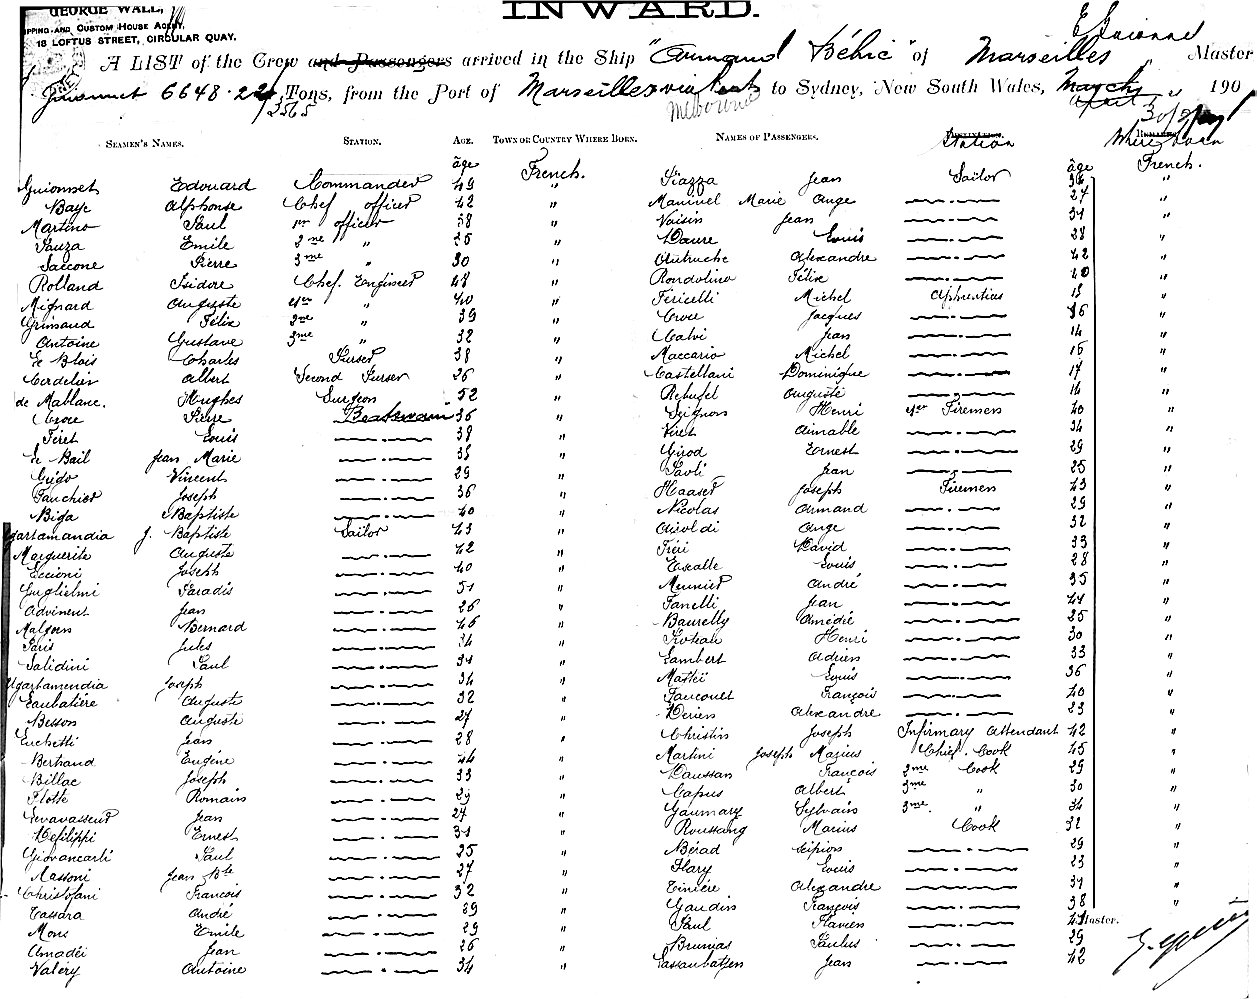 INWARD.
GEORGE WALL,
SHIPPING AND CUSTOM HOUSE AGENT,
18 LOFTUS STREET, CIRCULAR QUAY.
A LIST of the Crew and Passengers arrived in the Ship "Armand Béhic" of Marseilles, Master
6648.22, Tons, from the Port of Marseilles via to Sydney, New South Wales, March 190
2565 Melbourne April 30/3/
SEAMEN'S NAMES. STATION. AGE. TOWN OR COUNTRY WHERE BORN. NAMES OF PASSENGERS. Station REMARKS. Where born
âge French. âge French.
Guionnet Edouard Commander 49 " Piazza Jean Sailor 36 "
Baye Alphonse Chef officer 42 " Manivel Marie Ange 27 "
Martino Paul 1er officer 38 " Voisin Jean 31 "
Pauza Emile 2me " 35 " Daure Louis 28 "
Saccone Pierre 3me " 30 " Autruche Alexandre 42 "
Rolland Isidore Chef. Engineer 48 " Rondolino Félix 40 "
Mignard Auguste 1er " 40 " Piricelli Michel Aphrentias 18 "
Grimaud Félix 2me " 39 " Croce Jacques 16 "
Antoine Gustave 3me " 32 " Calvi Jean 14 "
Le Blois Charles Purser 38 " Maccario Michel 15 "
Cordelier Albert Second Purser 26 " Castellani Dominique 17 "
de Mablanc. Hughes Surgeon 52 " Rebufel Auguste 16 "
Croce Pierre Boatswain 36 " Henri 1er Firemen 40 "
Piret Louis 39 " Viret Aimable 34 "
Le Bail Jean Marie 35 " Girod Ernest 29 "
Guido Vincent 29 " Paoli Jean 25 "
Fauchier Joseph 36 " Haaser Joseph Firemen 43 "
Biga Baptiste 40 " Nicolas Armand 29 "
Ugartamandia J. Baptiste Sailor 43 " Ange 32 "
Marguerite Auguste 42 " David 33 "
Eccioni Joseph 40 " Escalle Louis 28 "
Guglielmi Paradis 51 " Meunier André 35 "
Advinent Jean 26 " Fanelli Jean 41 "
Bernard 46 " Baurelly Amédée 25 "
Paris Jules 34 " Henri 30 "
Salidini Paul 31 " Lambert Adrien 33 "
Ugartamendia Joseph 34 " Mattéi Louis 36 "
Laubatière Auguste 32 " François 40 "
Besson Auguste 27 " Derien Alexandre 23 "
Luchetti Jean 28 " Christin Joseph Infirmary Attendant 42 "
Berthand Eugène 44 " Martini Joseph Marius Chief Cook 45 "
Billac Joseph 33 " Daussan François 2me Cook 29 "
Flotte Romain 29 " Capus Albert 3me " 30 "
Levavasseur Jean 27 " Gaumary Sylvain 3me " 34 "
Defilippi Ernest 31 " Roussang Marius Cook 32 "
Giovancarli Paul 25 " Bérad Scipion 29 "
Massoni Jean Bte 27 " Flary Louis 23 "
Christofani François 32 " Tinière Alexandre 31 "
Cassara André 39 " Gaudin François 38 "
Mons Emile 29 " Paul Flavien 41 Master.
Amadéi Jean 26 " Brunias Paulus 29
Valéry Antoine 34 " Jean 42